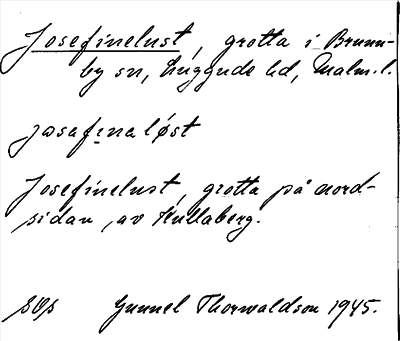 Josefinelust, grotta i Brunn-
by sn, Luggude hd, Malm.l.
josafinaløst
Josefinelust, grotta på nord-
sidan, av Kullaberg.
Gunnel Thorwaldson 1945.